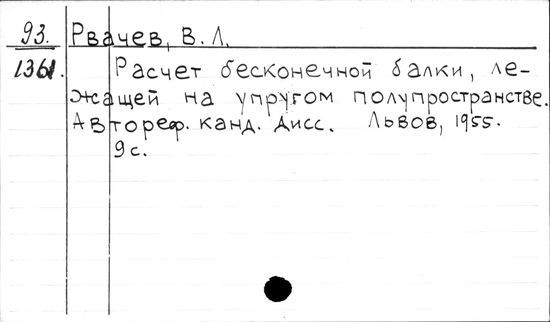 93. Рвачев, В. Л.
1361. Расчет бесконечной балки, ле-
жащей на упругом полупространстве.
Автореф. канд. дисс. Львов, 1955.
9 с.